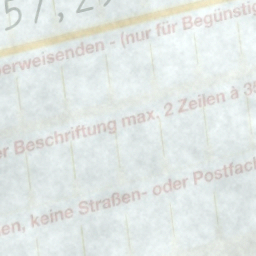 57,2
erweisenden - (nur für Begünstig
er Beschriftung max. 2 Zeilen à 35
en, keine Straßen- oder Postfach